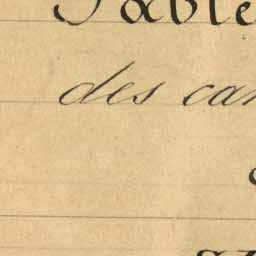 Table
des car